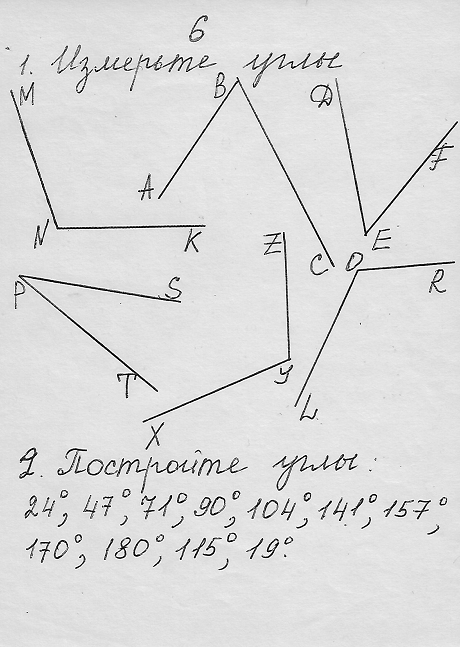 6
1. Измерьте углы
M
B
D
F
A
N
K
Z
E
C
O
R
P
S
T
Y
X
L
2. Постройте углы:
24°, 47°, 71°, 90°, 104°, 141°, 157°,
170°, 180°, 115°, 19°.